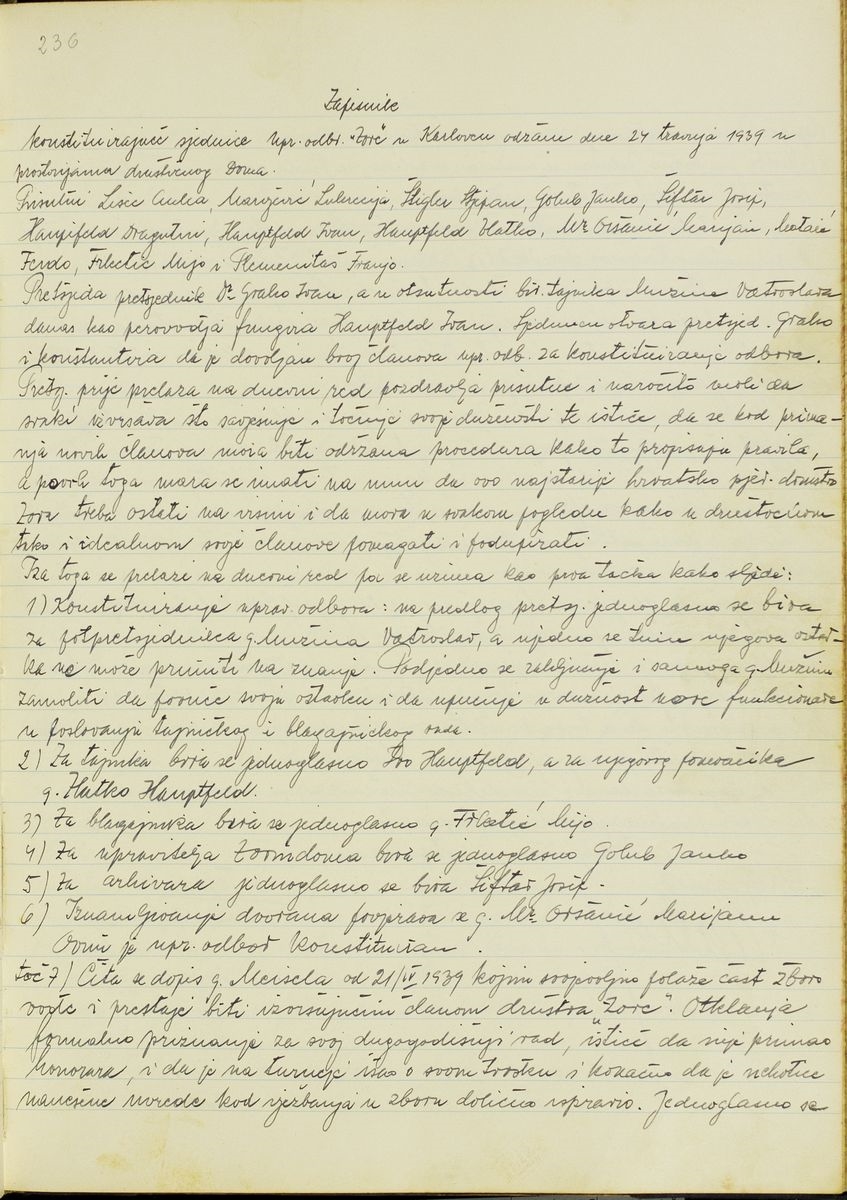 236
Zapisnik
konstituirajuće sjednice upr. odbr. "Zore" u Karlovcu održane dne 24 travnja 1939 u
prostorijama društvenog Doma.
Prisutni Lisac Anka, Lukrecija, Štigler Stjepan, Golub Janko, Šiftar Josip,
Hauptfeld Dragutin, Hauptfeld Ivan, Hauptfeld Vlatko, Mr. Oršanić Marijan, Mataić
Ferdo, Frketić Mijo i Plemenitaš Franjo.
Pretsjeda pretsjednik Dr. Graho Ivan, a u otsutnosti biv. tajnika Mužina Vatroslava
danas kao perovodja fungira Hauptfeld Ivan. Sjednicu otvara pretsjed. Graho
i konstantira da je dovoljan broj članova upr. odb. za konstituiranje odbora.
Pretsj. prije prelaza na dnevni red pozdravlja prisutne i naročito moli da
svaki izvršava što savjesnije i točnije svoje dužnosti te ističe, da se kod prima-
nja novih članova mora biti održana procedura kako to propisuju pravila,
a povrh toga mora se imati na umu da ovo najstarije hrvatsko pjev. društvo
Zora treba ostati na visini i da mora u svakom pogledu kako u društvenom
tako i idealnom svoje članove pomagati i podupirati.
Iza toga se prelazi na dnevni red pa se uzima kao prva tačka kako slijedi:
1) Konstituiranje uprav. odbora: na predlog pretsj. jednoglasno se bira
za potpretsjednika g. Mužina Vatroslav, a ujedno se time njegova ostav-
ka ne može primiti na znanje. Podjedno se zaključuje i samoga g. Mužina
zamoliti da povuče svoju ostavku i da upućuje u dužnost nove funkcionare
u poslovanju tajničkog i blagajničkog rada.
2) Za tajnika bira se jednoglasno Ivo Hauptfeld, a za njegovog pomoćnika
g. Vlatko Hauptfeld.
3) Za blagajnika bira se jednoglasno g. Frketić Mijo.
4) Za upravitelja Zorindoma bira se jednoglasno Golub Janko
5) Za arhivara jednoglasno se bira Šiftar Josip.
6) Iznamljivanje dvorana povjerava se g. Mr. Oršanić Marijanu
Ovim je upr. odbor konstituiran.
toč 7) Čita se dopis g. Meisela od 21/IV 1939 kojim svojevoljno polaže čast zboro
vodje i prestaje biti izvršujućim članom društva "Zore". Otklanja
formalno priznanje za svoj dugogodišnji rad, ističe da nije primao
honorara, i da je na turneje išao o svom trošku i konačno da je nehotice
nanešene uvrede kod vježbanja u zboru dolično ispravio. Jednoglasno se